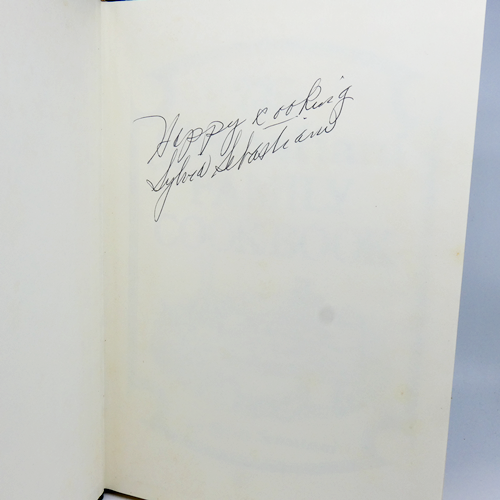 Happy cooking
Sylvia Sebastiani